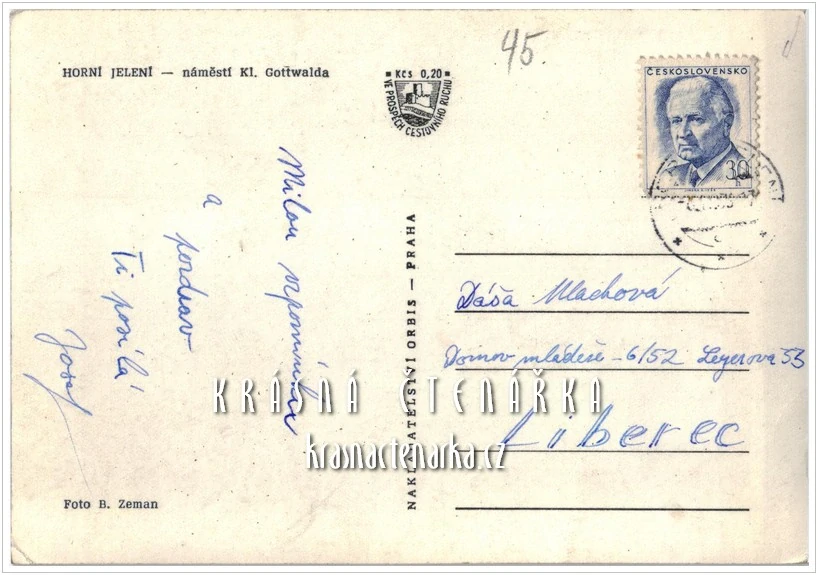 45.
HORNÍ JELENÍ — náměstí Kl. Gottwalda
Kčs 0,20
VE PROSPĚCH CESTOVNÍHO RUCHU
ČESKOSLOVENSKO
30
h
Milou vzpomínku
a
pozdrav
Ti posílá
Josef
NAKLADATELSTVÍ ORBIS — PRAHA
Dáša Vlachová
Domov mládeže - 6/52 Legerova 53
Liberec
KRÁSNÁ ČTENÁŘKA
krasnactenarka.cz
Foto B. Zeman